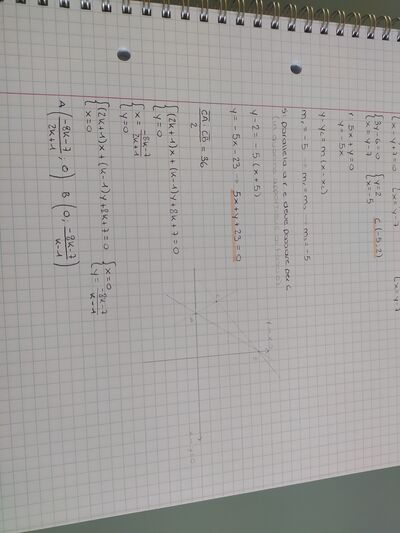 {x-y+7=0 {x=y-7 {x=y-7
{3y-6=0 {y=2 C(-5;2)
{x=y-7 {x=-5
r: 5x+y=0
y=-5x
y-y_c=m(x-x_c)
m_r=-5 m_s=-5
s: parallela a r e deve passare per C
y-2=-5(x+5)
y=-5x-23 5x+y+23=0
CA·CB/2=36
{(2k+1)x+(k-1)y+8k+7=0
{y=0
{x=-8k-7/2k+1
{y=0
{(2k+1)x+(k-1)y+8k+7=0 {x=0
{x=0 {y=-8k-7/k-1
A(-8k-7/2k+1; 0) B(0, -8k-7/k-1)